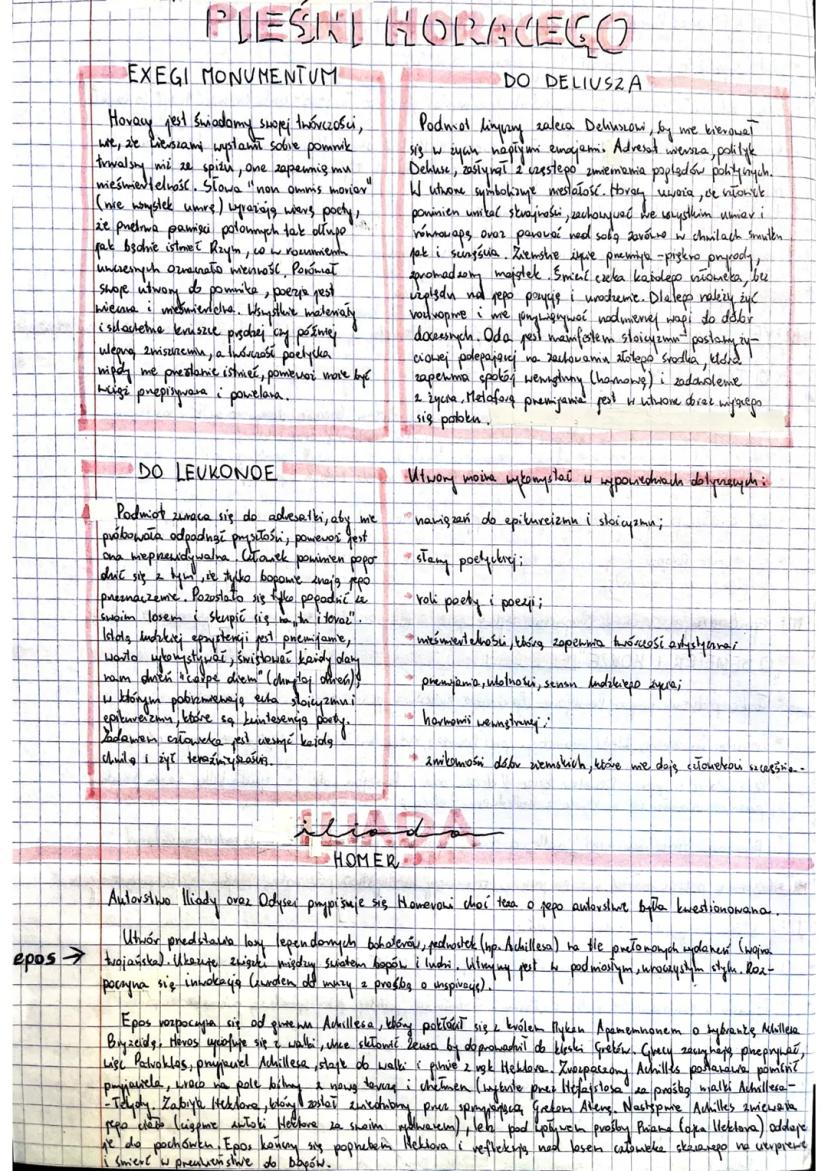 PIEŚNI HORACEGO
EXEGI MONUMENTUM
Horacy jest świadomy swojej twórczości,
wie, że wierszami wystawił sobie pomnik
trwalszy niż ze spiżu, one zapewnią mu
nieśmiertelność. Słowa "non omnis moriar"
(nie wszystek umrę) wyrażają wiarę poety,
że przetrwa pamięci potomnych tak długo
jak będzie istnieć Rzym, co w rozumieniu
ówczesnych oznaczało wieczność. Porównał
swoje utwory do pomnika, poezja jest
wieczna i nieśmiertelna. Wszystkie materiały
i szlachetne kruszce prędzej czy później
ulegną zniszczeniu, a twórczość poetycka
nigdy nie przestanie istnieć, ponieważ może być
wciąż przepisywana i powielana.
DO DELIUSZA
Podmiot liryczny zaleca Deliuszowi, by nie kierował
się w życiu nagłymi emocjami. Adresat wiersza, polityk
Deliusz, zasłynął z częstego zmieniania poglądów politycznych.
W utworze symbolizuje niestałość. Horacy uważa, że człowiek
powinien unikać skrajności, zachowywać we wszystkim umiar i
równowagę oraz panować nad sobą zarówno w chwilach smutku
jak i szczęścia. Ziemskie życie przemija - piękno przyrody,
zgromadzony majątek. Śmierć czeka każdego człowieka, bez
względu na jego pozycję i urodzenie. Dlatego należy żyć
roztropnie i nie przywiązywać nadmiernej wagi do dóbr
doczesnych. Oda jest manifestem stoicyzmu - postawy ży-
ciowej polegającej na zachowaniu złotego środka, która
zapewnia spokój wewnętrzny (harmonię) i zadowolenie
z życia. Metaforą przemijania jest w utworze obraz wijącego
się potoku.
DO LEUKONOE
Podmiot zwraca się do adresatki, aby nie
próbowała odgadnąć przyszłości, ponieważ jest
ona nieprzewidywalna. Człowiek powinien pogo-
dzić się z tym, że tylko bogowie znają jego
przeznaczenie. Pozostało się tylko pogodzić ze
swoim losem i skupić się na "tu i teraz".
Istotą ludzkiej egzystencji jest przemijanie,
warto wykorzystywać, świętować każdy dany
nam dzień "carpe diem" (chwytaj dzień),
w którym pobrzmiewają echa stoicyzmu i
epikureizmu, które są kwintesencją poety.
Zadaniem człowieka jest cieszyć każdą
chwilą i żyć teraźniejszością.
Utwory można wykorzystać w wypowiedziach dotyczących:
• nawiązań do epikureizmu i stoicyzmu;
• sławy poetyckiej;
• roli poety i poezji;
• nieśmiertelności, którą zapewnia twórczość artystyczna;
• przemijania, ulotności, sensu ludzkiego życia;
• harmonii wewnętrznej;
• znikomości dóbr ziemskich, które nie dają człowiekowi szczęścia.
ILIADA
iliada
HOMER
Autorstwo Iliady oraz Odysei przypisuje się Homerowi choć teza o jego autorstwie była kwestionowana.
epos →
Utwór przedstawia losy legendarnych bohaterów, jednostek (np. Achillesa) na tle przełomowych wydarzeń (wojna
trojańska). Ukazuje związki między światem bogów i ludzi. Utrzymany jest w podniosłym, uroczystym stylu. Roz-
poczyna się inwokacją (zwrotem do muzy z prośbą o inspirację).
Epos rozpoczyna się od gniewu Achillesa, który pokłócił się z królem Myken Agamemnonem o wybrankę Achillesa
Bryzeidę. Heros wycofuje się z walki, chce skłonić Zeusa by doprowadził do klęski Greków. Grecy zaczynają przegrywać,
więc Patroklos, przyjaciel Achillesa, staje do walki i ginie z rąk Hektora. Zrozpaczony Achilles postanawia pomścić
przyjaciela, wraca na pole bitwy z nową tarczą i chełmem (wykute przez Hefajstosa za prośbą matki Achillesa-
-Tetydy. Zabija Hektora, który został zwiedziony przez sprzyjającą Grekom Atenę. Następnie Achilles znieważa
jego ciało (ciągnie zwłoki Hektora za swoim rydwanem), lecz pod wpływem prośby Priama (ojca Hektora) oddaje
je do pochówku. Epos kończy się pogrzebem Hektora i refleksją nad losem człowieka skazanego na cierpienie
i śmierć w przeciwieństwie do bogów.